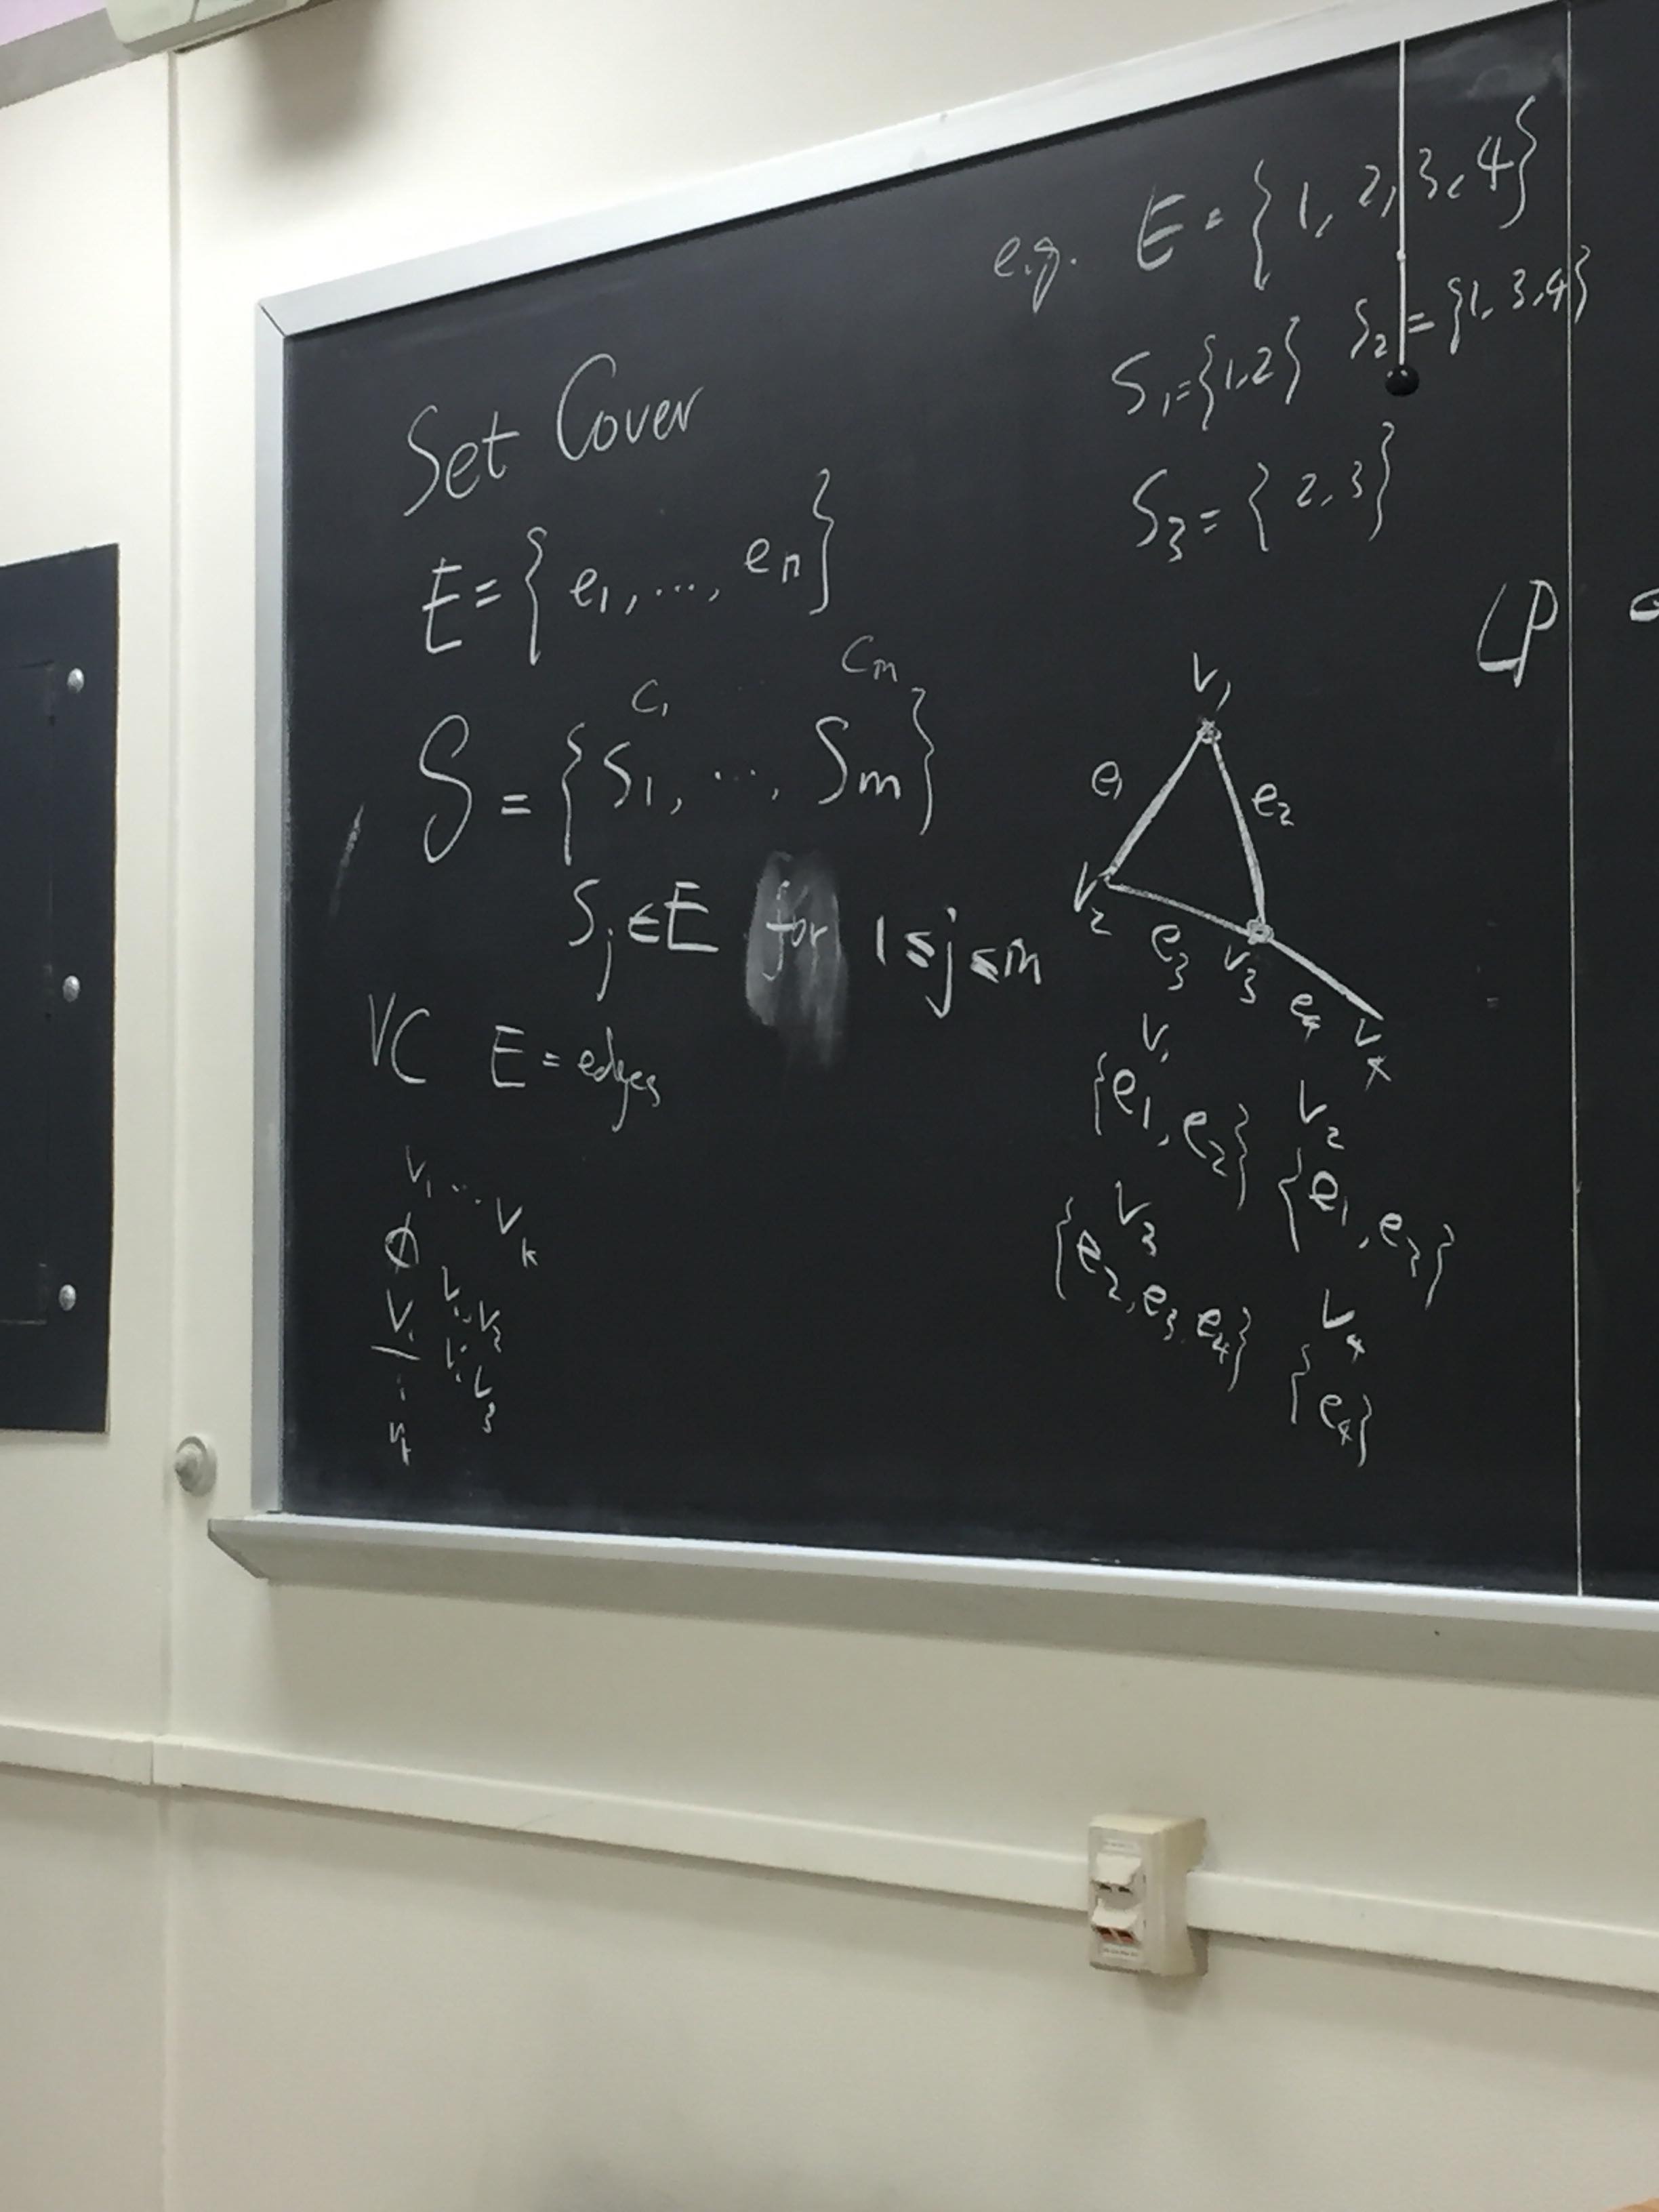 Set Cover
E = { e1, ..., en }
C1 ... Cm
S = { S1, ..., Sm }
Sj ∈ E for 1 ≤ j ≤ m
VC E = edges
V1 ... Vk
ϕ
V1 V1, V2
V1, V3
e.g. E = { 1, 2, 3, 4 }
S1 = {1,2} S2 = {1, 3, 4}
S3 = { 2, 3 }
LP
V1
e1 e2
V2 e3 V3 e4 V4
V1
{e1, e2}
V2
{e1, e3}
V3
{e2, e3, e4}
V4
{e4}